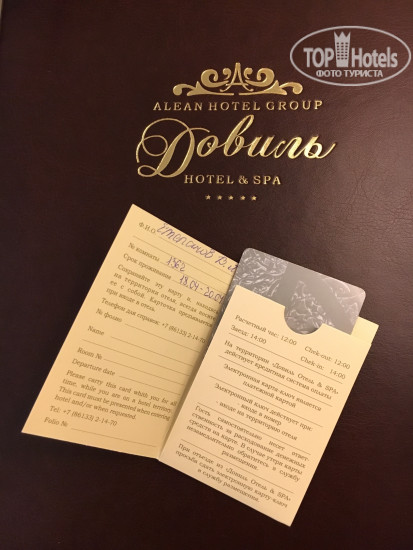 TOP Hotels
ФОТО ТУРИСТА
ALEAN HOTEL GROUP
Довиль
HOTEL & SPA
Ф.И.О.
№ комнаты 1362
Срок проживания 18.04-20.04
Сохраняйте эту карту и, находясь
на территории отеля, всегда носите
ее с собой. Карточка предъявляется
при входе в отель.
Телефон для справок: +7 (86133) 2-14-70
№ фолио
Name
Room №
Departure date
Please carry this card when you be all
time, while you are on a hotel territory.
This card must be presented when entering
hotel and/or when requested.
Tel. +7 (86133) 2-14-70
Folio №
Расчетный час: 12:00 Chek-out: 12:00
Заезд: 14:00 Chek-in: 14:00
На территории «Довиль Отель & SPA»
действует кредитная система оплаты
Электронная карта ключ является
платежной картой
Электронный ключ действует при:
- входе в номер
- входе на территорию отеля
Гость самостоятельно несет ответ-
ственность за расходование денежных
средств на карте. В случае утери карты
незамедлительно обратитесь в службу
размещения.
При отъезде из «Довиль Отель & SPA»
просьба сдать электронную карту-ключ
в службу размещения.